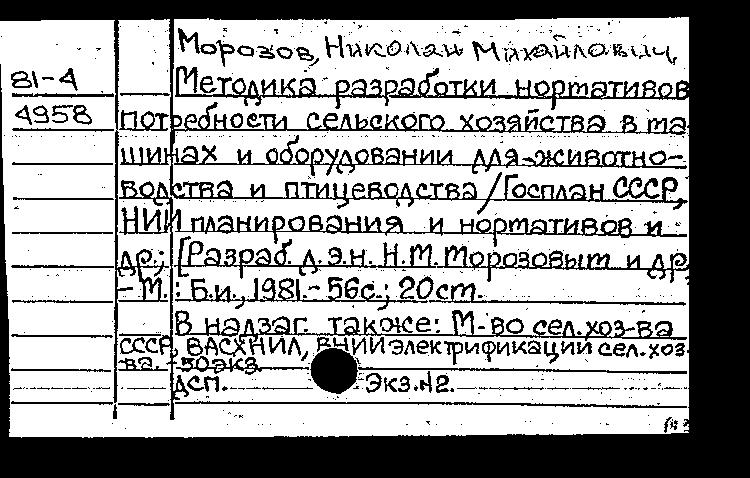 Морозов, Николай Михайлович
81-4 Методика разработки нормативов
4958 потребности сельского хозяйства в ма-
шинах и оборудовании для животно-
водства и птицеводства / Госплан СССР,
НИИ планирования и нормативов и
др.; [Разраб. д.э.н. Н.М. Морозовым и др.
- М.: Б.и., 1981.- 56с.; 20 см.
В надзаг. также: М-во сел.хоз-ва
СССР, ВАСХНИЛ, ВНИИ электрификации сел.хоз-
ва. -50экз.
ДСП. Экз.№2.